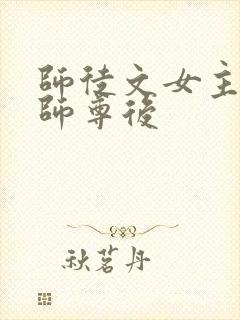 師徒文女主
師尊後
秋茗丹